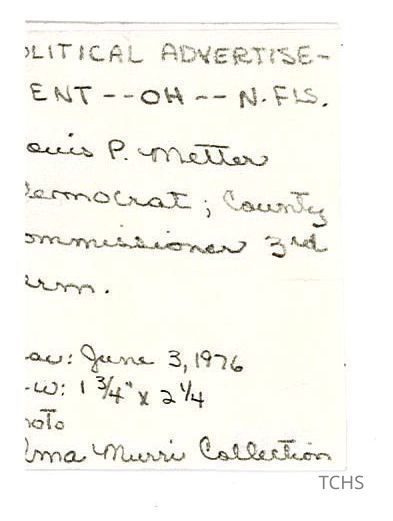 OLITICAL ADVERTISE-
ENT -- OH -- N. FLS.
ouis P. Metter
emocrat; County
ommissioner 3rd
erm.
aw: June 3, 1976
-w: 1 3/4" x 2 1/4
hoto
lma Murri Collection
TCHS